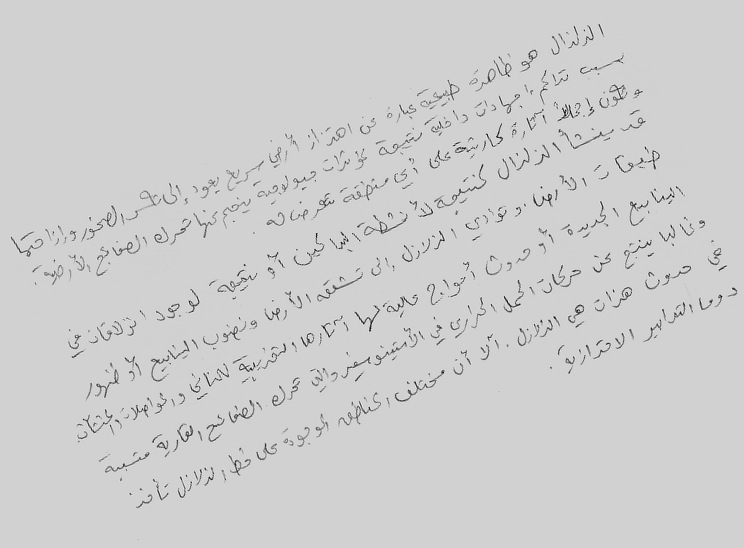 الزلزال هو ظاهرة طبيعية عبارة عن اهتزاز أرضي سريع يعود إلى تكسر الصخور وإزاحتها
بسبب تراكم إجهادات داخلية نتيجة لمؤثرات جيولوجية ينجم عنها تحرك الصفائح الأرضية.
وتكون إجمالا آثاره كارثية على أي منطقة تتعرض له.
قد ينشأ الزلزال كنتيجة لأنشطة البراكين أو نتيجة لوجود انزلاقات في
طبقات الأرض. وتؤدي الزلازل إلى تشقق الأرض ونضوب الينابيع أو ظهور
الينابيع الجديدة أو حدوث أمواج عالية لها آثارها التخريبية للمباني والمواصلات والمنشآت.
وغالبا ينتج عن حركات الحمل الحراري في الأستينوسفير والتي تحرك الصفائح القارية متسببة
في حدوث هزات هي الزلازل. ألا أن مختلف المناطق الموجودة على خط الزلازل تأخذ
دوما التدابير الاحترازية.